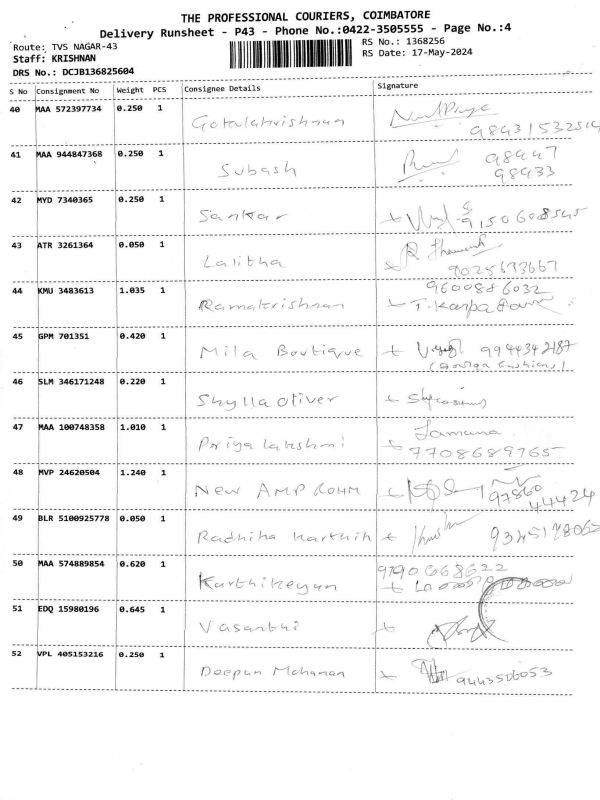 THE PROFESSIONAL COURIERS, COIMBATORE
Delivery Runsheet - P43 - Phone No.:0422-3505555 - Page No.:4
Route: TVS NAGAR-43
RS No.: 1368256
Staff: KRISHNAN
RS Date: 17-May-2024
DRS No.: DCJB136825604
S No Consignment No Weight PCS Consignee Details Signature
40 MAA 572397734 0.250 1
Gotalakrishnan
41 MAA 944847368 0.250 1
Subash 98447
98433
42 MYD 7340365 0.250 1
Sankar
43 ATR 3261364 0.050 1
Lalitha
44 KMU 3483613 1.035 1 9600886032
Ramakrishnan
45 GPM 701351 0.420 1
Mila Boutique 9944342187
46 SLM 346171248 0.220 1
Shylla oliver
47 MAA 100748358 1.010 1 Jamuna
Priya lakshmi 7708689765
48 MVP 24620504 1.240 1
New AMP ROHM 97860
44424
49 BLR 5100925778 0.050 1
Radhika Karthik
50 MAA 574889854 0.620 1 9790668622
Karthikeyan
51 EDQ 15980196 0.645 1
Vasanthi
52 VPL 405153216 0.250 1
Deepan Mohanan 9443506053